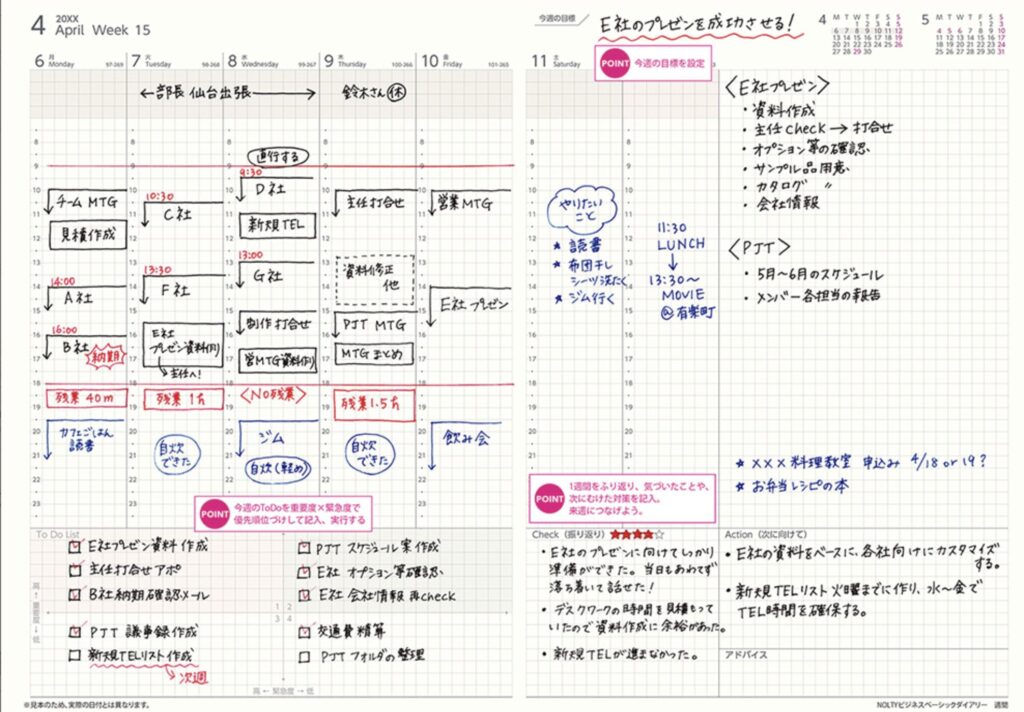 4
20XX
April Week 15
今週の目標
E社のプレゼンを成功させる!
POINT 今週の目標を設定
4
M T W T F S S
1 2 3 4 5
6 7 8 9 10 11 12
13 14 15 16 17 18 19
20 21 22 23 24 25 26
27 28 29 30
5
M T W T F S S
1 2 3
4 5 6 7 8 9 10
11 12 13 14 15 16 17
18 19 20 21 22 23 24
25 26 27 28 29 30 31
6 月 Monday 97-269
7 火 Tuesday 98-268
8 水 Wednesday 99-267
9 木 Thursday 100-266
10 金 Friday 101-265
11 土 Saturday
←部長 仙台出張→
鈴木さん 休
直行する
チーム MTG
見積作成
14:00
A社
16:00
B社 納期
残業 40m
カフェごはん
読書
10:30
C社
13:30
F社
E社
プレゼン資料(作)
主任へ!
残業 1h
自炊
できた
9:30
D社
新規TEL
13:00
G社
制作打合せ
営MTG資料(作)
<NO残業>
ジム
自炊(軽め)
主任打合せ
資料修正
他
PJT MTG
MTG まとめ
残業1.5h
自炊
できた
営業MTG
E社 プレゼン
飲み会
やりたい
こと
★ 読書
★ 布団干し
シーツ洗たく
★ ジム行く
11:30
LUNCH
↓
13:30〜
MOVIE
@有楽町
<E社プレゼン>
・資料作成
・主任check→打合せ
・オプション等の確認
・サンプル品用意
・カタログ 〃
・会社情報
<PJT>
・5月〜6月のスケジュール
・メンバー各担当の報告
★ ×××料理教室 申込み 4/18 or 19?
★ お弁当レシピの本
POINT 今週のToDoを重要度×緊急度で
優先順位づけして記入、実行する
POINT 1週間をふり返り、気づいたことや、
次にむけた対策を記入。
来週につなげよう。
To Do List
E社プレゼン資料作成
主任打合せアポ
B社納期確認メール
PJT 議事録作成
新規TELリスト作成
次週
PJT スケジュール案作成
E社 オプション等確認
E社 会社情報 再check
交通費精算
PJTフォルダの整理
高←重要度→低
1 2
3 4
高 ← 緊急度 → 低
Check(振り返り)★★★★☆
・E社のプレゼンに向けてしっかり
準備ができた。当日もあわてず
落ち着いて話せた!
・デスクワークの時間を見積もって
いたので資料作成に余裕があった。
・新規TELが進まなかった。
Action(次に向けて)
・E社の資料をベースに、各社向けにカスタマイズ
する。
・新規TELリスト火曜までに作り、水〜金で
TEL時間を確保する。
アドバイス
※見本のため、実際の日付とは異なります。
NOLTYビジネスベーシックダイアリー 週間